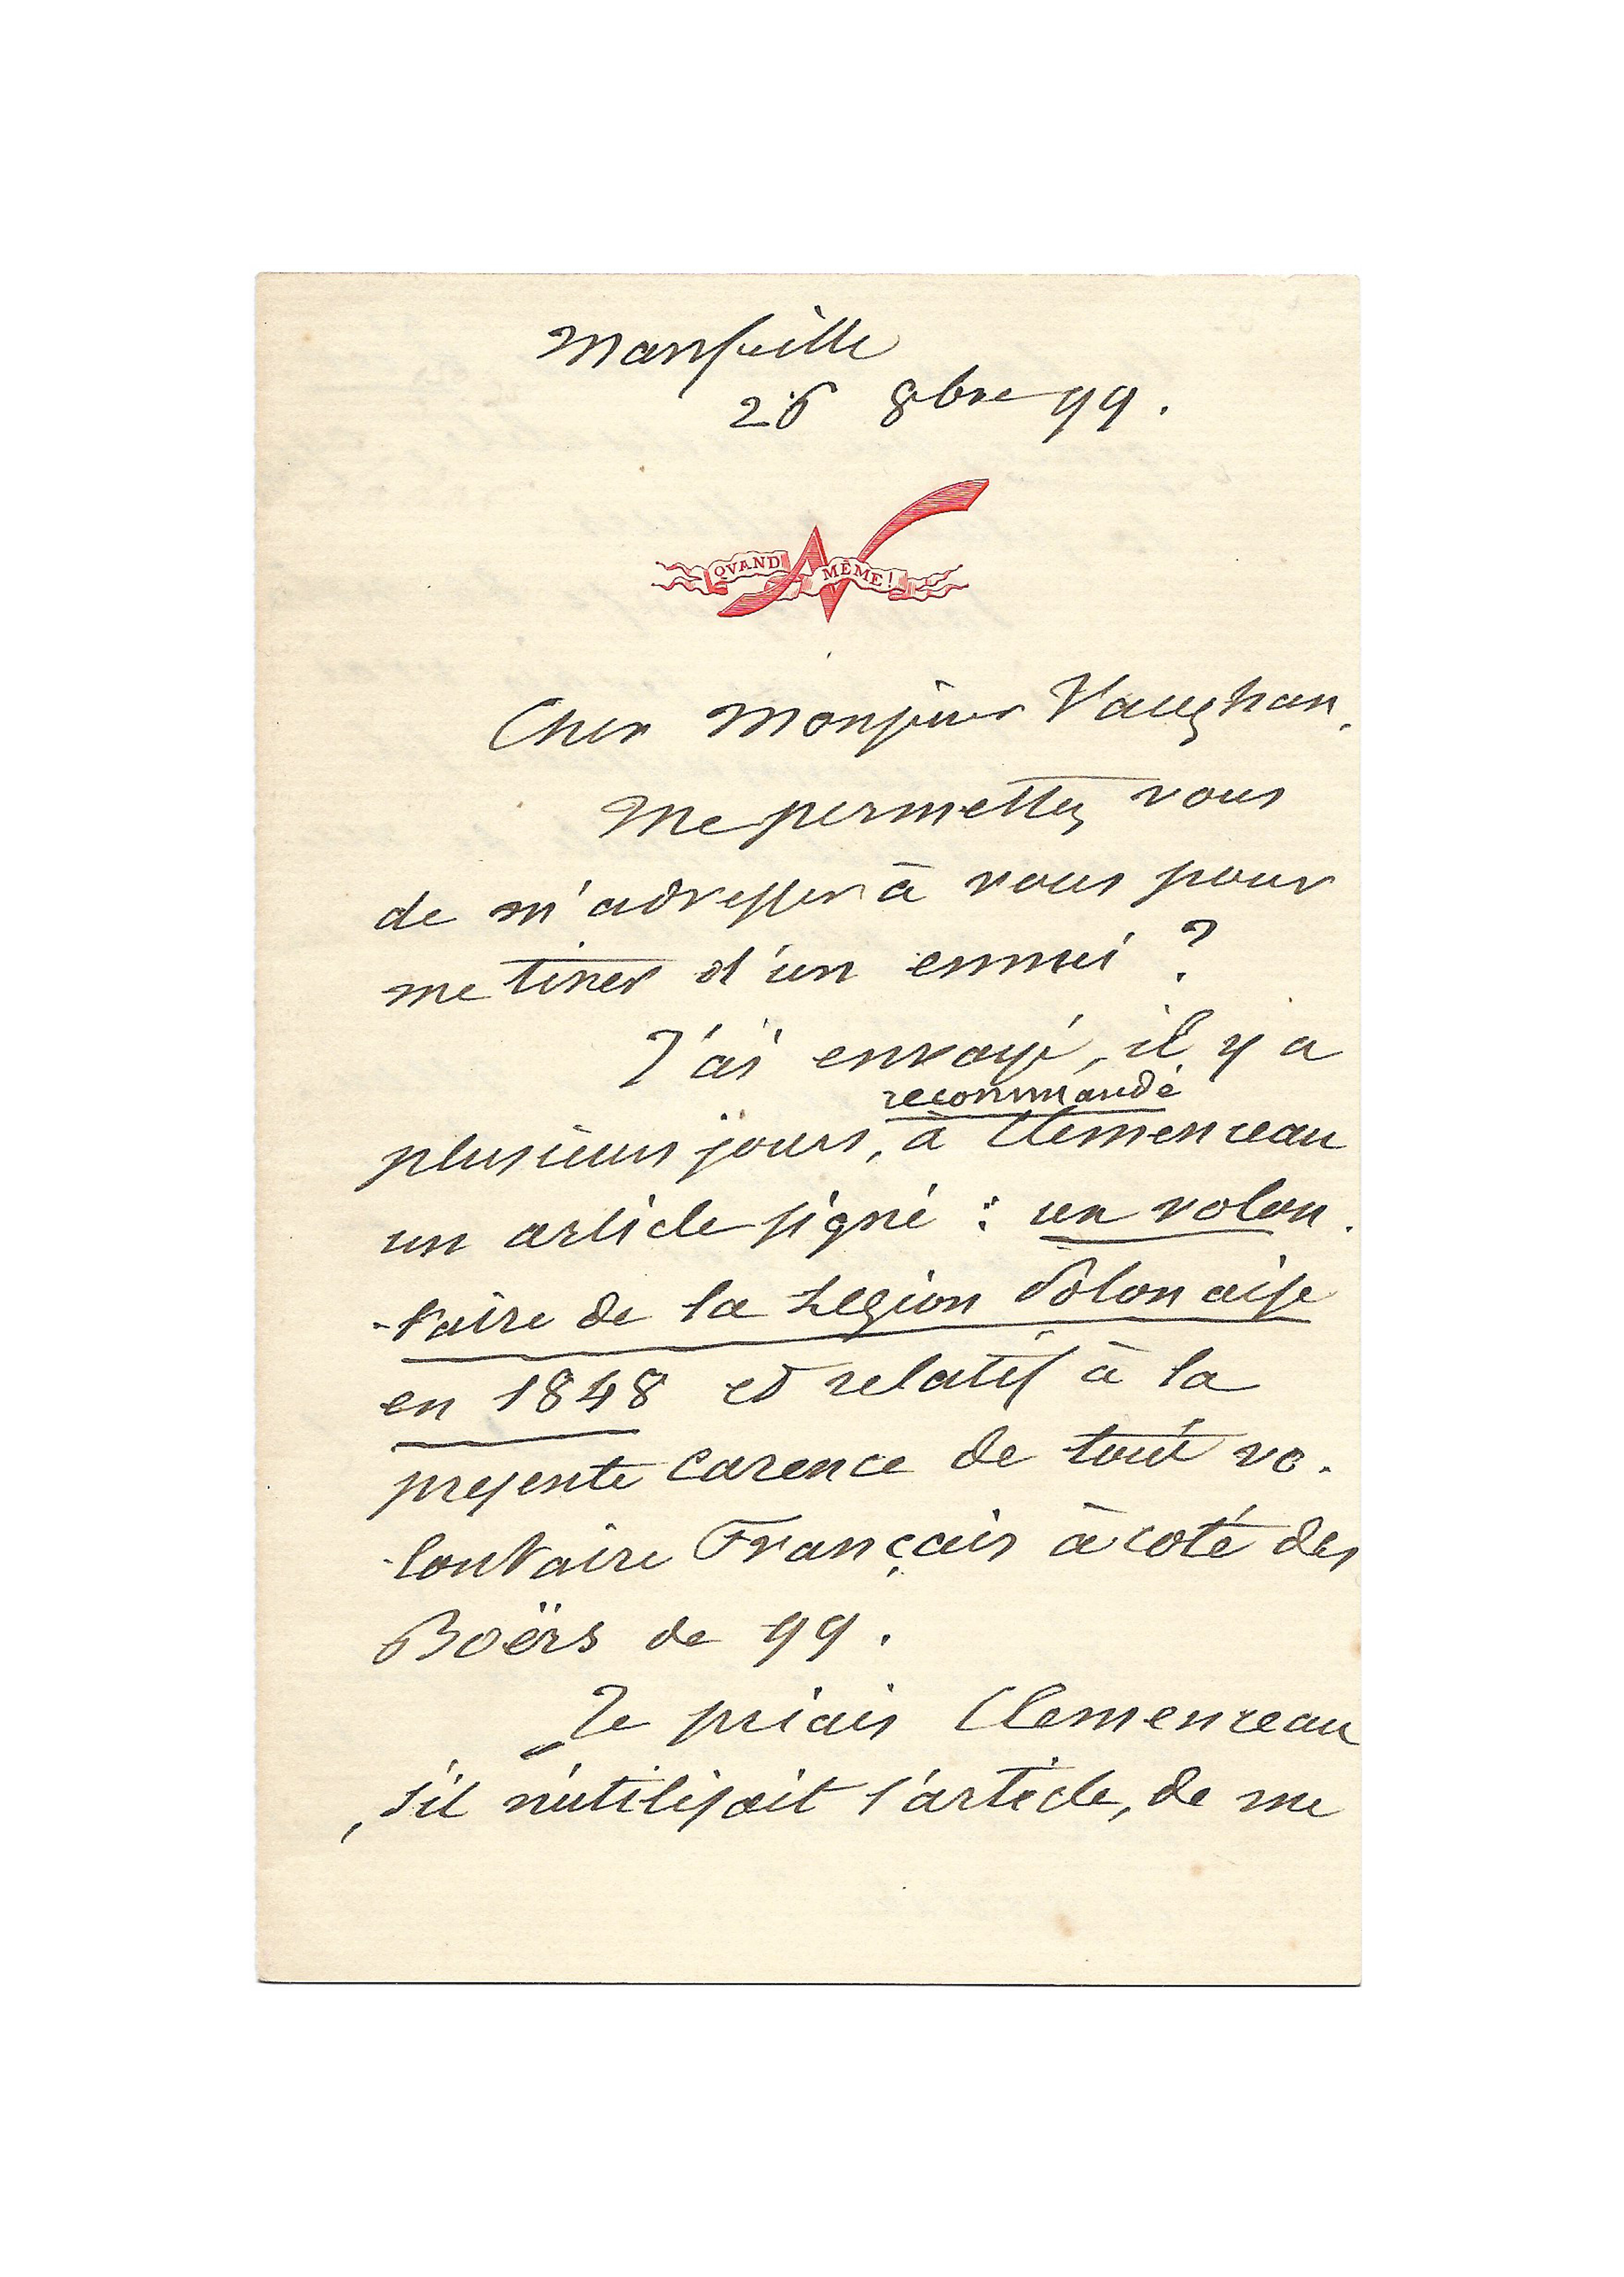 Marseille
26 8bre 99.
QVAND MÊME!
Cher Monsieur Vaughan.
Me permettez vous
de m'adresser à vous pour
me tirer d'un ennui ?
J'ai envoyé, il y a
recommandé
plusieurs jours, à Clemenceau
un article signé : un volon.
-taire de la Légion Polonaise
en 1848 et relatif à la
presente carence de tout vo.
-lontaire Français à coté des
Boërs de 99.
Je priais Clemenceau
, s'il n'utilisait l'article, de me